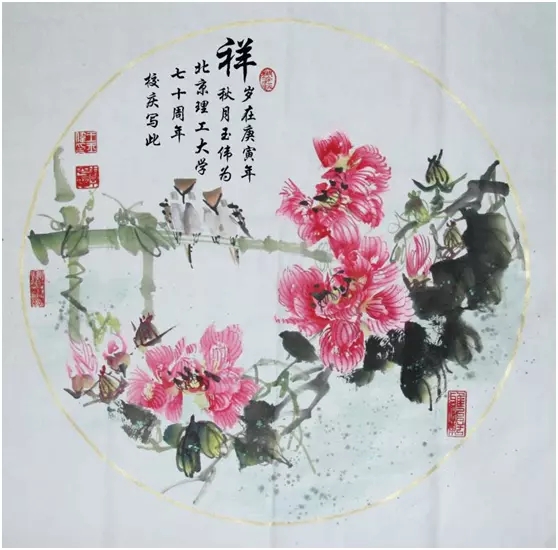 祥
岁在庚寅年
秋月玉伟为
北京理工大学
七十周年
校庆写此